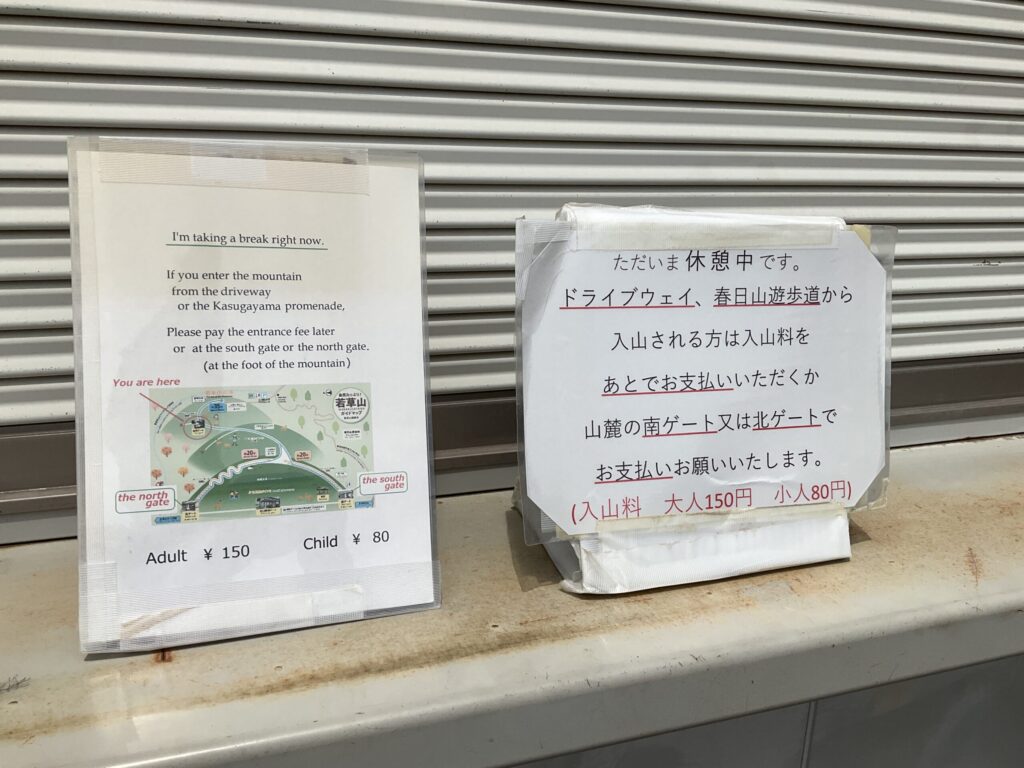 I'm taking a break right now.
If you enter the mountain
from the driveway
or the Kasugayama promenade,
Please pay the entrance fee later
or at the south gate or the north gate.
(at the foot of the mountain)
You are here
若草山
ガイドマップ
the north
gate
the south
gate
Adult ¥ 150 Child ¥ 80
ただいま休憩中です。
ドライブウェイ、春日山遊歩道から
入山される方は入山料を
あとでお支払いいただくか
山麓の南ゲート又は北ゲートで
お支払いお願いいたします。
(入山料 大人150円 小人80円)